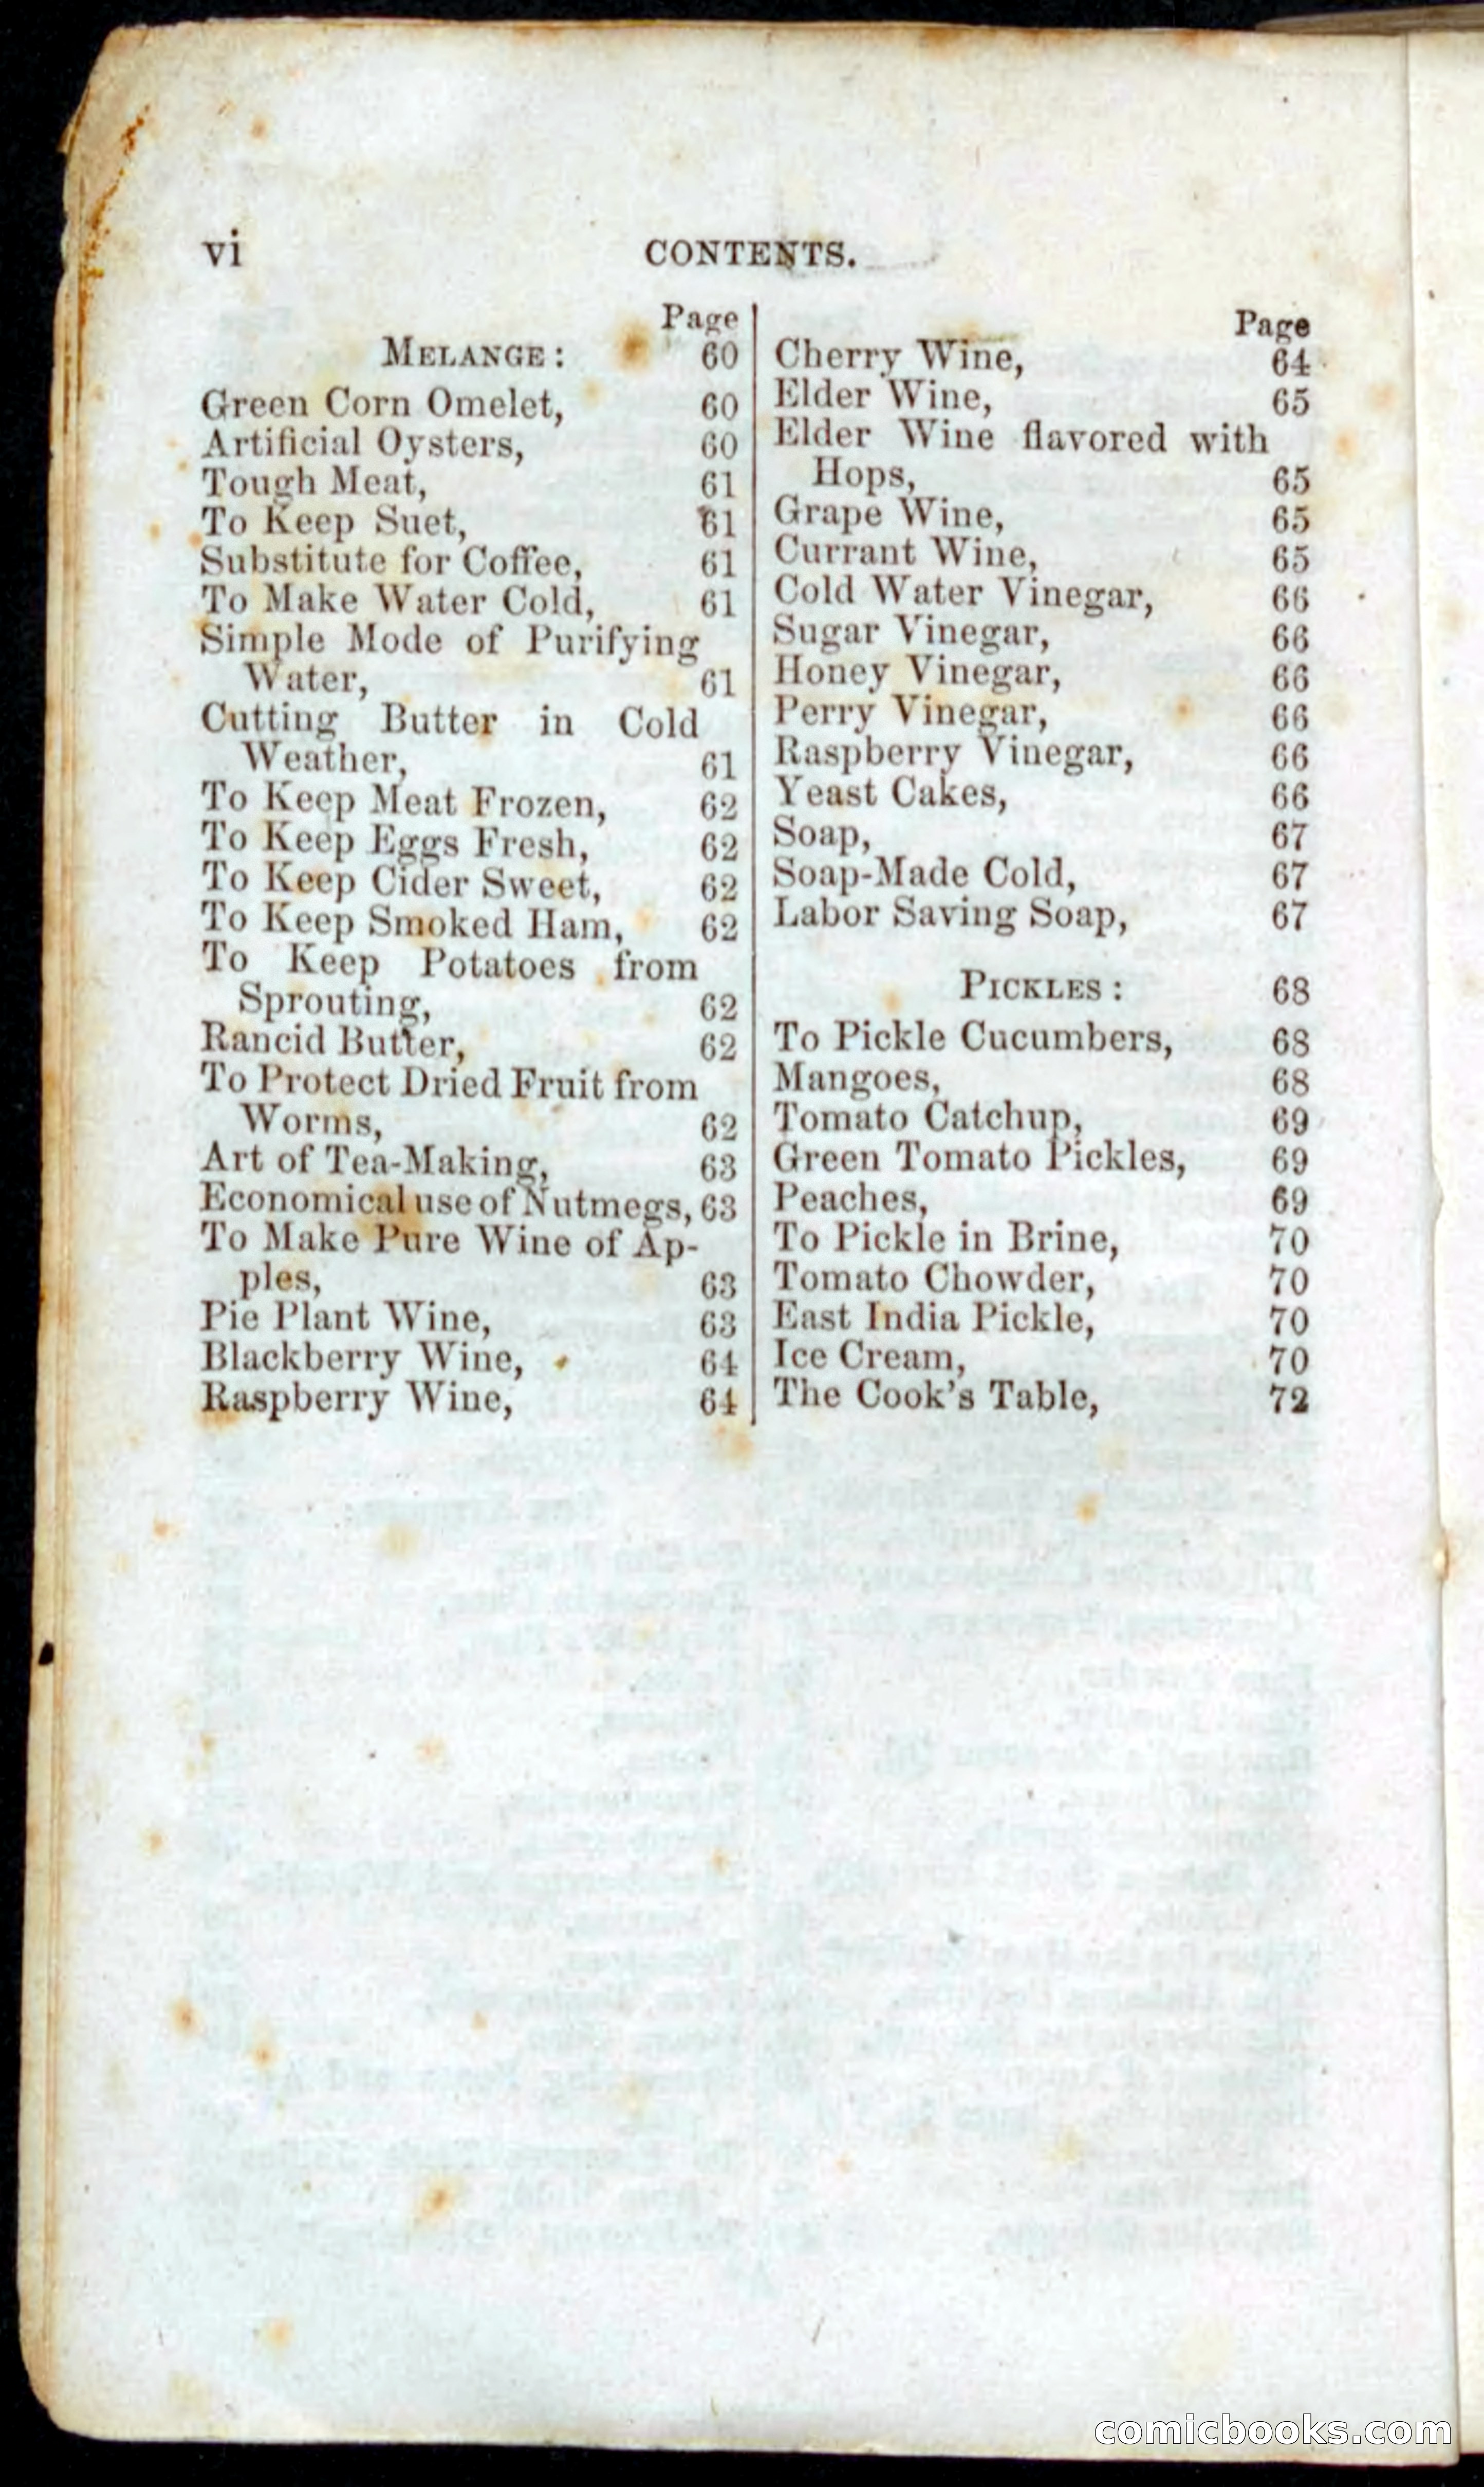 vi CONTENTS.
Page
MELANGE: 60
Green Corn Omelet, 60
Artificial Oysters, 60
Tough Meat, 61
To Keep Suet, 61
Substitute for Coffee, 61
To Make Water Cold, 61
Simple Mode of Purifying
Water, 61
Cutting Butter in Cold
Weather, 61
To Keep Meat Frozen, 62
To Keep Eggs Fresh, 62
To Keep Cider Sweet, 62
To Keep Smoked Ham, 62
To Keep Potatoes from
Sprouting, 62
Rancid Butter, 62
To Protect Dried Fruit from
Worms, 62
Art of Tea-Making, 63
Economical use of Nutmegs, 63
To Make Pure Wine of Ap-
ples, 63
Pie Plant Wine, 63
Blackberry Wine, 64
Raspberry Wine, 64
Page
Cherry Wine, 64
Elder Wine, 65
Elder Wine flavored with
Hops, 65
Grape Wine, 65
Currant Wine, 65
Cold Water Vinegar, 66
Sugar Vinegar, 66
Honey Vinegar, 66
Perry Vinegar, 66
Raspberry Vinegar, 66
Yeast Cakes, 66
Soap, 67
Soap-Made Cold, 67
Labor Saving Soap, 67
PICKLES: 68
To Pickle Cucumbers, 68
Mangoes, 68
Tomato Catchup, 69
Green Tomato Pickles, 69
Peaches, 69
To Pickle in Brine, 70
Tomato Chowder, 70
East India Pickle, 70
Ice Cream, 70
The Cook's Table, 72
comicbooks.com